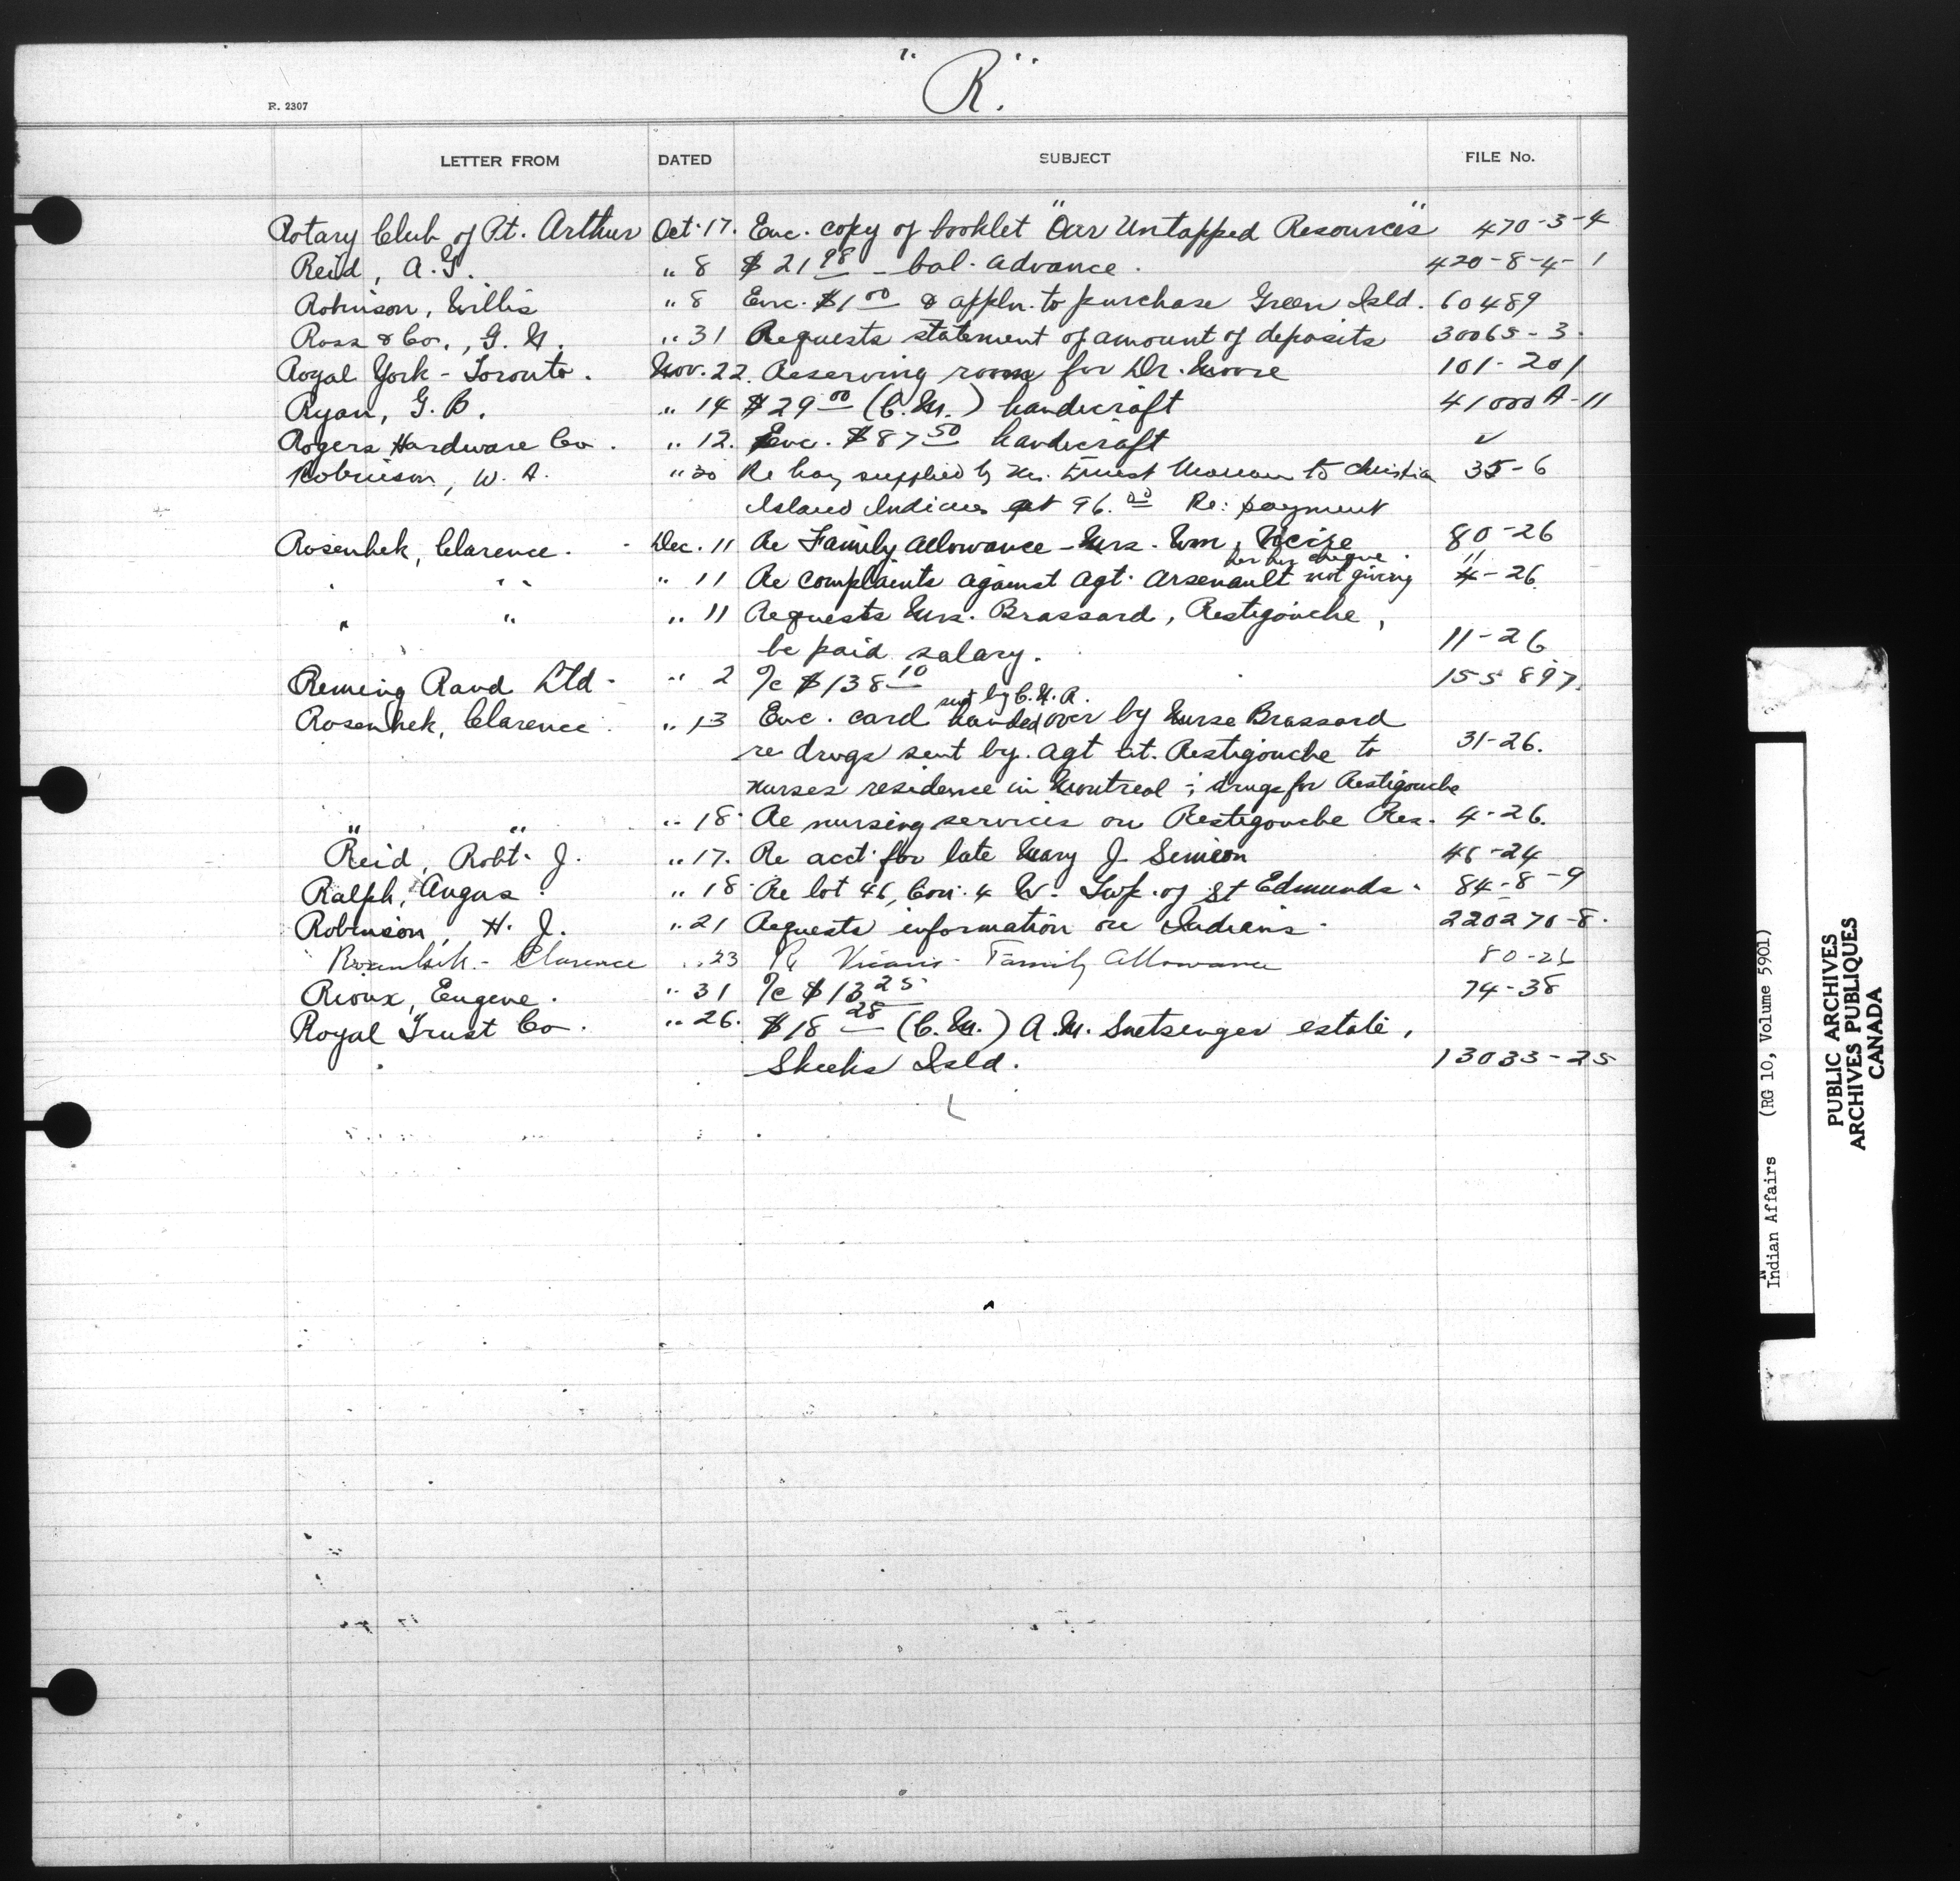 "R."
R. 2307
LETTER FROM DATED SUBJECT FILE No.
Rotary Club of Pt. Arthur Oct. 17. Enc. copy of booklet "Our Untapped Resources" 470-3-4
Reid, A.G. " 8 $21 98 - bal. advance. 420-8-4-1
Robinson, Willis " 8 Enc. $1 00 & appln. to purchase Green Isld. 60489
Ross & Co., G. N. " 31 Requests statement of amount of deposits 30065-3.
Royal York - Toronto. Nov. 22. Reserving room for Dr. Moore 101-201
Ryan, G. B. " 14 $29 00 (C.M.) handicraft 41000A-11
Rogers Hardware Co. " 12. Enc. $87 50 handicraft ✓
Robinson, W. A. " 20 Re hay supplied by Mr. Ernest to Christian 35-6
Island Indians at 96. 00 Re: payment
Rosenhek, Clarence. Dec. 11 Re Family Allowance - Mrs. Wm. 80-26
her her cheque.
" " " 11 Re complaints against Agt. Arsenault not giving 4-26 "
" " " 11 Requests Mrs. Brassard, Restigouche,
be paid salary. 11-26
Reming Rand Ltd. " 2 %c $138 10 155897.
sent by C.N.R.
Rosenhek, Clarence. " 13 Enc. card handed over by Nurse Brassard
re drugs sent by Agt at Restigouche to 31-26.
nurses residence in Montreal; drugs for Restigouche
" " " 18. Re nursing services on Restigouche Res. 4-26.
Reid, Robt. J. " 17. Re acct. for late Mary J. Simeon 46-24
Ralph, Angus. " 18. Re lot 46, Con. 4 W. Twp. of St Edmunds. 84-8-9
Robinson, H. J. " 21 Requests information on Indians. 220270-8.
Rosenhek - Clarence " 23 Re Vicaire - Family Allowance 80-26
Rioux, Eugene. " 31 %c $13 25 74-38
Royal Trust Co. " 26. $18 28 (C.M.) A.M. Snetsenger estate,
Sheeks Isld. 13033-25
Indian Affairs (RG 10, Volume 5901)
PUBLIC ARCHIVES
ARCHIVES PUBLIQUES
CANADA